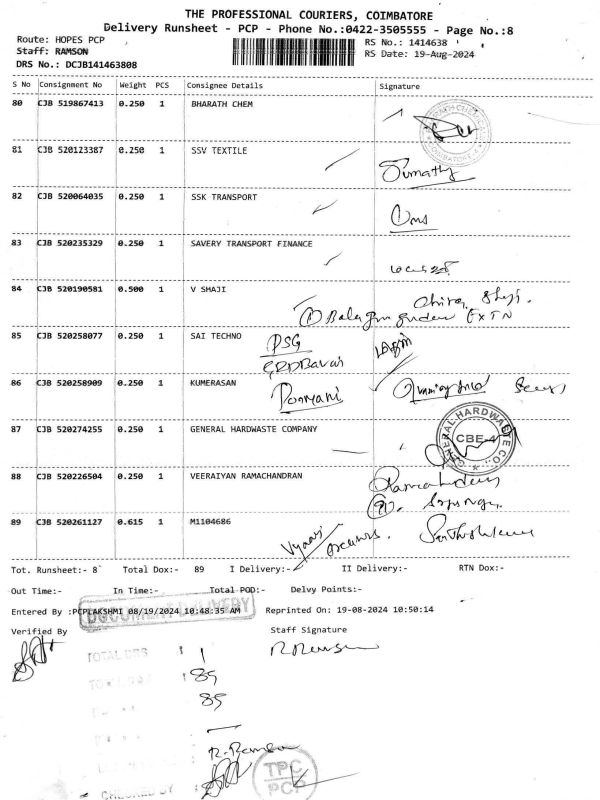 THE PROFESSIONAL COURIERS, COIMBATORE
Delivery Runsheet - PCP - Phone No.:0422-3505555 - Page No.:8
Route: HOPES PCP RS No.: 1414638
Staff: RAMSON RS Date: 19-Aug-2024
DRS No.: DCJB141463808
S No Consignment No Weight PCS Consignee Details Signature
80 CJB 519867413 0.250 1 BHARATH CHEM
81 CJB 520123387 0.250 1 SSV TEXTILE
Sumathy
82 CJB 520064035 0.250 1 SSK TRANSPORT
83 CJB 520235329 0.250 1 SAVERY TRANSPORT FINANCE
84 CJB 520190581 0.500 1 V SHAJI
EXTN
85 CJB 520258077 0.250 1 SAI TECHNO PSG
86 CJB 520258909 0.250 1 KUMERASAN
87 CJB 520274255 0.250 1 GENERAL HARDWASTE COMPANY
GENERAL HARDWASTE CO.
CBE-4
88 CJB 520226504 0.250 1 VEERAIYAN RAMACHANDRAN
89 CJB 520261127 0.615 1 M1104686
Tot. Runsheet:- 8 Total Dox:- 89 I Delivery:- II Delivery:- RTN Dox:-
Out Time:- In Time:- Total POD:- Delvy Points:-
Entered By :PCPLAKSHMI 08/19/2024 10:48:35 AM Reprinted On: 19-08-2024 10:50:14
DOCUMENT DELIVERY
Verified By Staff Signature
TOTAL DRS 1
89
89
R. Ramson
CHECKED BY
TPC
PCP